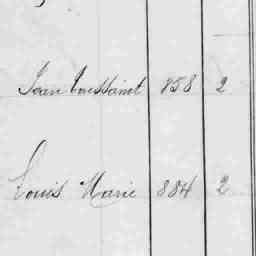 Jean Toussaint 858 2
Louis Marie 884 2